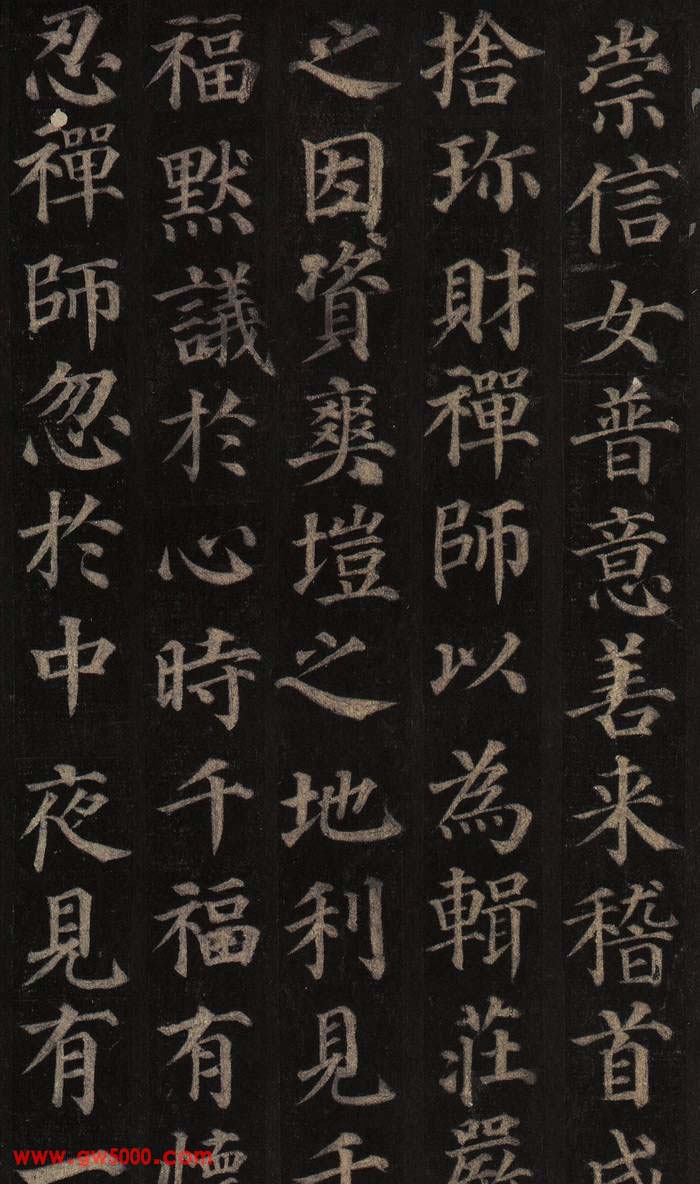 崇信女普意善来稽首咸
捨珎財禪師以為輯莊嚴
之因資爽塏之地利見千
福默議於心時千福有懷
忍禪師忽於中夜見有一
www.gw5000.com